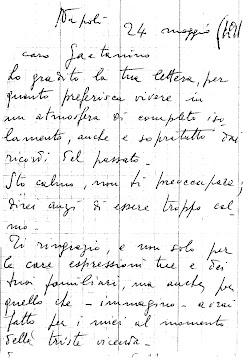 Napoli
24 maggio
caro Gaetanino
ho gradito la tua lettera, per
quanto preferisca vivere in
un atmosfera di completo iso
lamento, anche e sopratutto dai
ricordi del passato.
Sto calmo, non ti preoccupare;
direi anzi di essere troppo cal-
mo.
Ti ringrazio, e non solo per
le care espressioni tue e dei
tuoi familiari, ma anche per
quello che - immagino - avrai
fatto per i miei al momento
della triste vicenda.